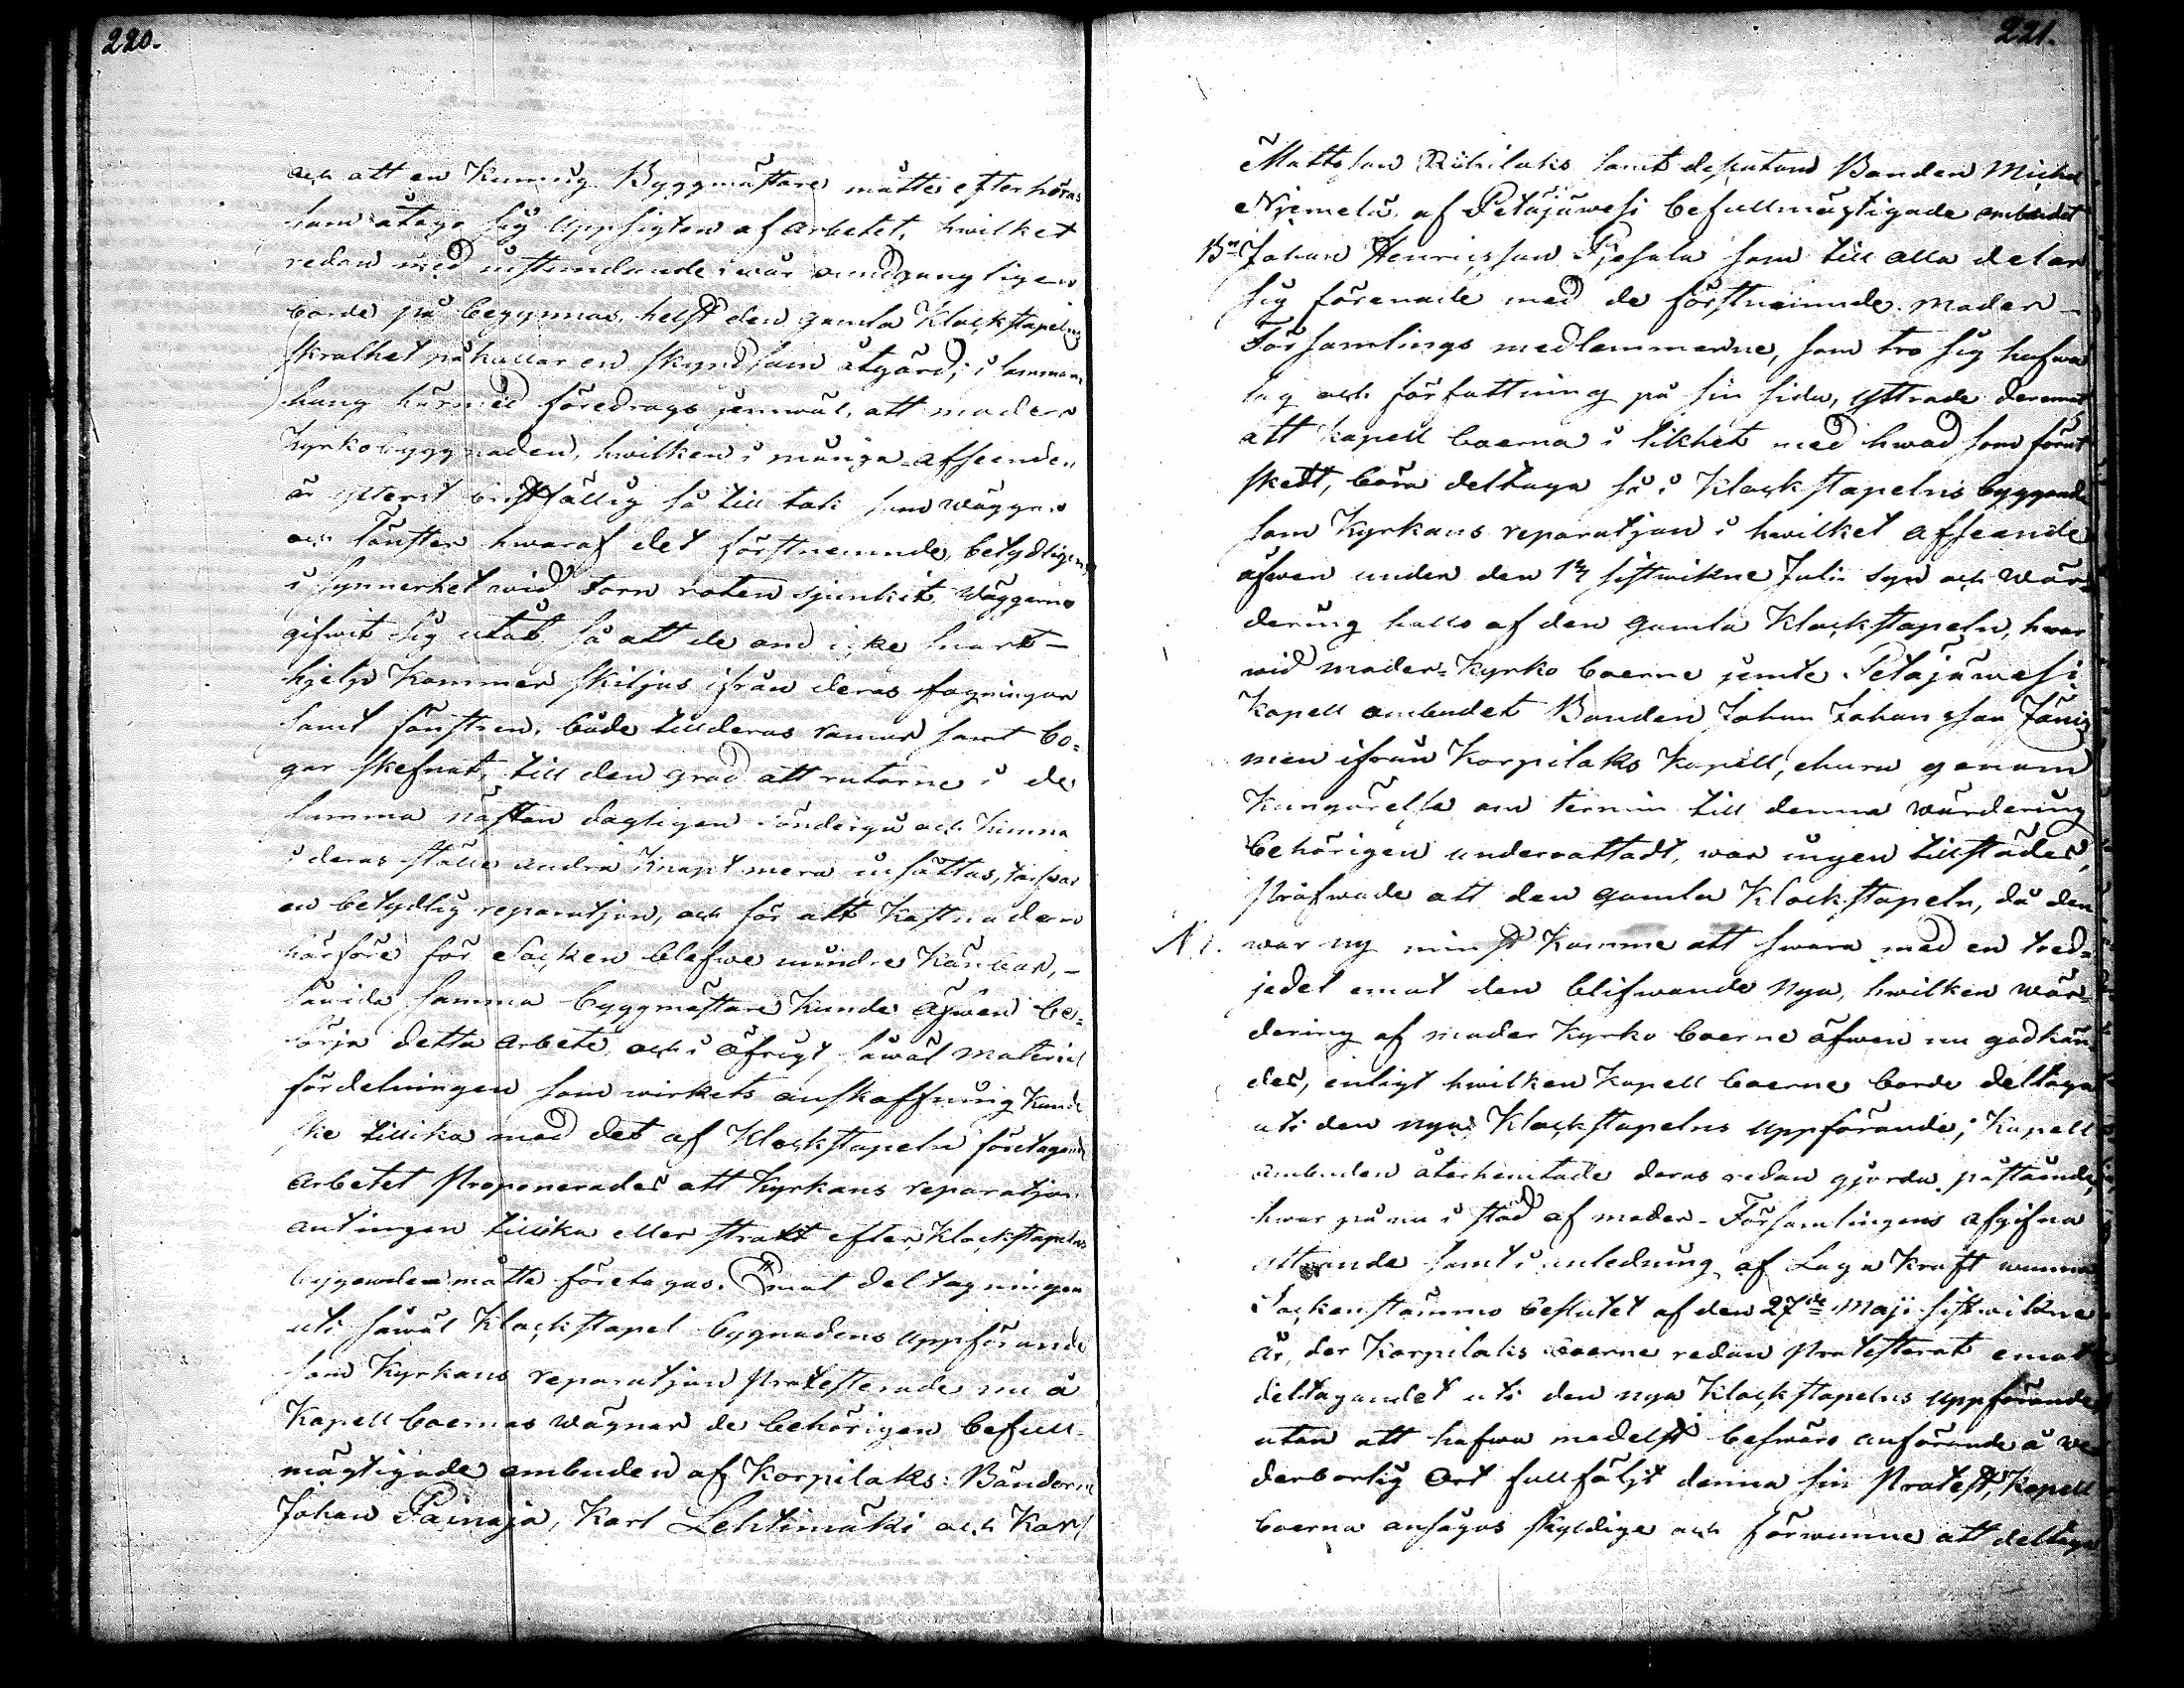 220.
och att en Kunnig Byggmästare måtte efterhöras
som åtage sig Uppsigten af arbetet, hwilket
redan med nästinstundande wår
borde på begynnas, helst den gamla Klockstapelns
skralhet påkallar en skyndsam åtgärd; i samman-
hang härmed föredrogs jemwäl, att moder
Kyrkobyggnaden, hwilken i många afseenden
är ytterst bristfällig så till tak som wäggar
och fönster hwaraf det förstnemnde, betydligen
i synnerhet wid torn roten sjunkit, wäggarne
gifwit sig utåt så att de om icke snart
hjelp kommer skiljas ifrån deras fogningar
samt fönstren, både till deras ramar samt bo-
gar skefnat, till den grad att rutorne i de
samma nästan dagligen söndergå och kunna
i deras ställe andra knapt mera insättas, tarfwar
en betydlig reparatjon, och för att kostnaden
härföre för Socken blefwe mindre kännbar, -
såwida samma byggmästare kunde äfwen be-
sörja detta arbete, och i öfrigt såwäl material
fördelningen som wirkets anskaffning kunde
ske tillika med det af Klockstapeln företagande
arbetet Proponerades att Kyrkans reparatjon
antingen tillika eller straxt efter Klockstapelns
byggande måtte företagas. Emot deltagningen
uti såwäl Klockstapel bygnadens uppförande
som Kyrkans reparatjon Protesterade nu å
Kapellboernas wägnar de behörigen befull-
mägtigade ombuden af Korpilaks: Bönderne
Johan Painaja, Karl Lehtimäki och Karl
221.
Mattsson Rihilaks samt deputand Bonden Michel
Niemelä, af Petäjäwesi befullmägtigade ombudet
Bn Johan Henricsson Piesala som till alla delar
sig förenade med de förstnemnde. Moder-
Församlings medlemmarne, som tro sig hafwa
lag och författning på sin sida, yttrade deremot
att Kapell boerna i likhet med hwad som förut
skett, böra deltaga så i Klockstapelns byggande
som Kyrkans reparatjon i hwilket afseende
äfwen under den sistwikne Julii syn och wär-
dering hölls af den gamla Klockstapeln, hwar
wid moder-Kyrko boerne jemte Petäjäwesi
Kapell ombudet Bonden Johan Johansson
men ifrån Korpilaks Kapell, ehuru genom
Kungörelse om termin till denna wärdering
behörigen underrättadt, war ingen tillstädes,
pröfwade att den gamla Klockstapeln, då den
N 1. war ny minst komme att swara med en tred-
jedel emot den blifwande nya, hwilken wär-
dering af moder Kyrko boerne äfwen nu godkän-
des, enligt hwilken Kapell boerne borde deltaga
uti den nya Klockstapelns uppförande; Kapell
ombuden återhemtade deras redan gjorda påstående,
hwar på nu i stöd af moder-Församlingens afgifna
yttrande samt i anledning af Laga Kraft wunna
Sockenstämmo beslutet af den 27de Maji sistwikne
år, der Korpilaks boerne redan Protesterat emot
deltagandet uti den nya Klockstapelns uppförande
utan att hafwa medelst beswärs anförande å we
derbörlig Ort fullföljt denna sin Protest, Kapell
boerna ansågos skyldige och förwunne att deltaga